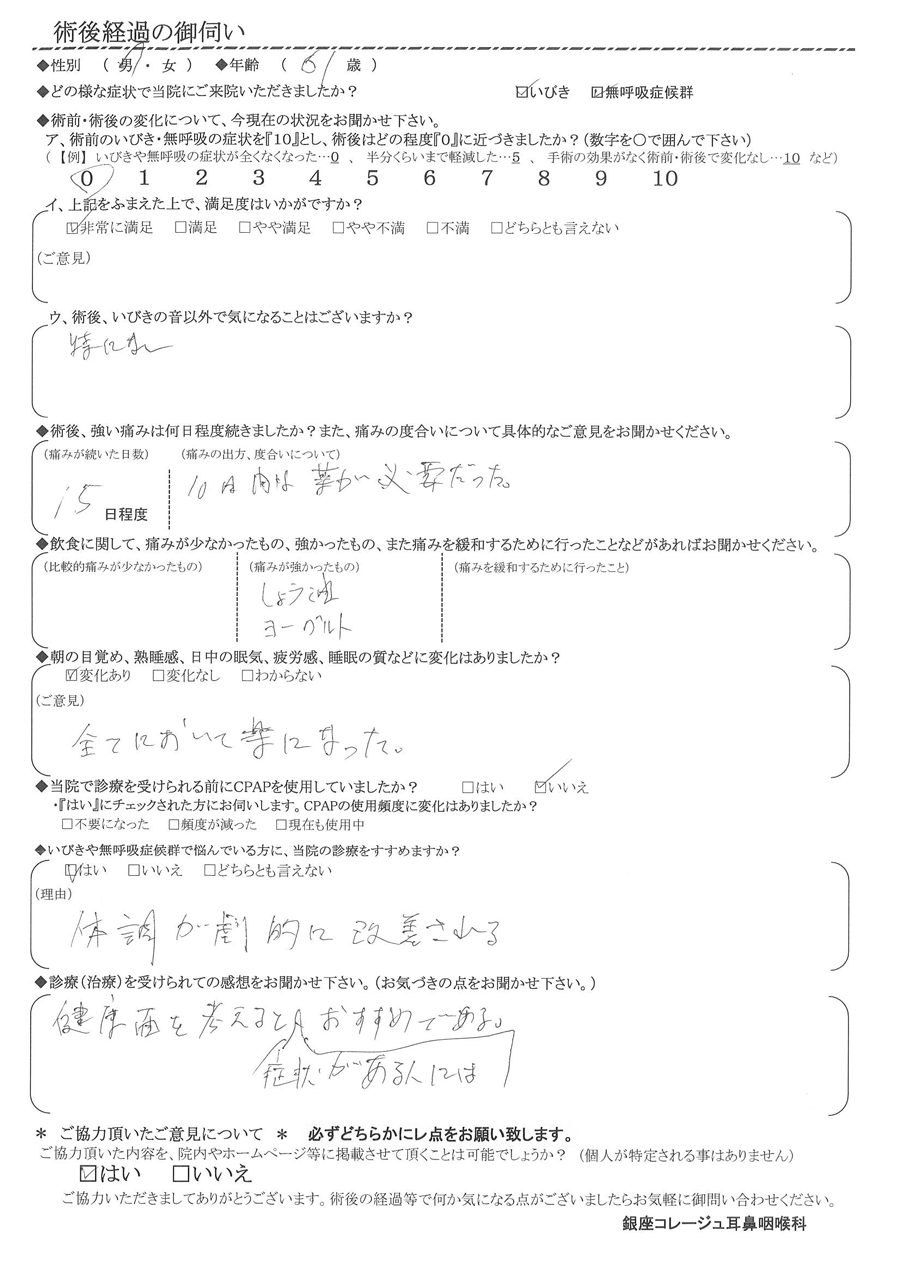 術後経過の御伺い
◆性別　（ 男 ・ 女 ）　◆年齢　（ 61 歳 ）
◆どの様な症状で当院にご来院いただきましたか？　☑いびき　☑無呼吸症候群
◆術前・術後の変化について、今現在の状況をお聞かせ下さい。
ア、術前のいびき・無呼吸の症状を『10』とし、術後はどの程度『0』に近づきましたか？（数字を○で囲んで下さい）
（【例】いびきや無呼吸の症状が全くなくなった…0 、 半分くらいまで軽減した…5 、 手術の効果がなく術前・術後で変化なし…10 など）
0　1　2　3　4　5　6　7　8　9　10
イ、上記をふまえた上で、満足度はいかがですか？
☑非常に満足　□満足　□やや満足　□やや不満　□不満　□どちらとも言えない
（ご意見）
ウ、術後、いびきの音以外で気になることはございますか？
特になし
◆術後、強い痛みは何日程度続きましたか？また、痛みの度合いについて具体的なご意見をお聞かせください。
（痛みが続いた日数）　（痛みの出方、度合いについて）
15 日程度　10日内は薬が必要だった。
◆飲食に関して、痛みが少なかったもの、強かったもの、また痛みを緩和するために行ったことなどがあればお聞かせください。
（比較的痛みが少なかったもの）　（痛みが強かったもの）　（痛みを緩和するために行ったこと）
しょう油
ヨーグルト
◆朝の目覚め、熟睡感、日中の眠気、疲労感、睡眠の質などに変化はありましたか？
☑変化あり　□変化なし　□わからない
（ご意見）
全てにおいて楽になった。
◆当院で診療を受けられる前にCPAPを使用していましたか？　□はい　☑いいえ
・『はい』にチェックされた方にお伺いします。CPAPの使用頻度に変化はありましたか？
□不要になった　□頻度が減った　□現在も使用中
◆いびきや無呼吸症候群で悩んでいる方に、当院の診療をすすめますか？
☑はい　□いいえ　□どちらとも言えない
（理由）
体調が劇的に改善される
◆診療（治療）を受けられての感想をお聞かせ下さい。（お気づきの点をお聞かせ下さい。）
健康面を考えるとおすすめである。
症状がある人には
＊ ご協力頂いたご意見について ＊　必ずどちらかにレ点をお願い致します。
ご協力頂いた内容を、院内やホームページ等に掲載させて頂くことは可能でしょうか？（個人が特定される事はありません）
☑はい　□いいえ
ご協力いただきましてありがとうございます。術後の経過等で何か気になる点がございましたらお気軽に御問い合わせください。
銀座コレージュ耳鼻咽喉科